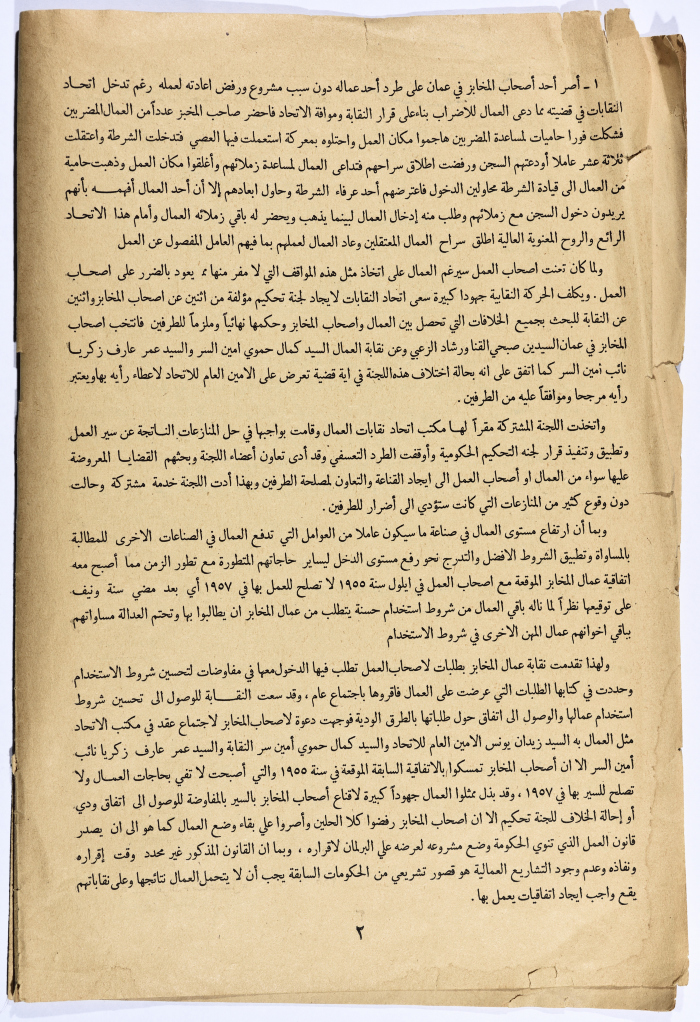 ١ ـ أصر أحد أصحاب المخابز في عمان على طرد أحد عماله دون سبب مشروع ورفض اعادته لعمله رغم تدخل اتحاد
النقابات في قضيته مما دعى العمال للأضراب بناء على قرار النقابة وموافة الاتحاد فاحضر صاحب المخبز عدداً من العمال المضربين
فشكلت فورا حاميات لمساعدة المضربين هاجموا مكان العمل واحتلوه بمعركة استعملت فيها العصي فتدخلت الشرطة واعتقلت
ثلاثة عشر عاملا أودعتهم السجن ورفضت اطلاق سراحهم فتداعى العمال لمساعدة زملائهم وأغلقوا مكان العمل وذهبت حامية
من العمال الى قيادة الشرطة محاولين الدخول فاعترضهم أحد عرفاء الشرطة وحاول ابعادهم إلا أن أحد العمال أفهمـــه بأنهم
يريدون دخول السجن مع زملائهم وطلب منه إدخال العمال لبينما يذهب ويحضر له باقي زملائه العمال وأمام هذا الاتحـاد
الرائع والروح المعنوية العالية اطلق سراح العمال المعتقلين وعاد العمال لعملهم بما فيهم العامل المفصول عن العمل
ولما كان تعنت اصحاب العمل سيرغم العمال على اتخاذ مثل هذه المواقف التي لا مفر منها مما يعود بالضرر على اصحـاب
العمل . ويكلف الحركة النقابية جهودا كبيرة سعى اتحاد النقابات لايجاد لجنة تحكيم مؤلفة من اثنين عن اصحاب المخابز واثنين
عن النقابة للبحث بجميع الخلافات التي تحصل بين العمال واصحاب المخابز وحكمها نهائياً وملزماً للطرفين فانتخب اصحاب
المخابز في عمان السيدين صبحي القنا ورشاد الزعي وعن نقابة العمال السيد كمال حموي امين السر والسيد عمر عارف زكريـا
نائب أمين السر كما اتفق على انه بحالة اختلاف هذه اللجنة في اية قضية تعرض على الامين العام للاتحاد لاعطاء رأيه بها ويعتبر
رأيه مرجحا وموافقاً عليه من الطرفين .
واتخذت اللجنة المشتركة مقراً لهـا مكتب اتحاد نقابات العمال وقامت بواجبها في حل المنازعات النـاتجة عن سير العمل
وتطبيق وتنفيذ قرار لجنه التحكيم الحكومية وأوقفت الطرد التعسفي وقد أدى تعاون أعضاء اللجنة وبحثهم القضايـا المعروضة
عليها سواء من العمال او أصحاب العمل الى ايجاد القناعة والتعاون لمصلحة الطرفين وبهذا أدت اللجنة خدمة مشتركة وحالت
دون وقوع كثير من المنازعات التي كانت ستؤدي الى أضرار للطرفين .
وبما أن ارتفاع مستوى العمال في صناعة ما سيكون عاملا من العوامل التي تدفع العمال في الصناعات الاخرى للمطالبة
بالمساواة وتطبيق الشروط الافضل والتدرج نحو رفع مستوى الدخل ليساير حاجاتهم المتطورة مع تطور الزمن مما أصبح معه
اتفاقية عمال المخابز الموقعة مع اصحاب العمل في ايلول سنة ١٩٥٥ لا تصلح للعمل بها في ١٩٥٧ أي بعد مضي سنة ونيف
على توقيعها نظراً لما ناله باقي العمال من شروط استخدام حسنة يتطلب من عمال المخابز ان يطالبوا بها وتحتم العدالة مساواتهم
بباقي اخوانهم عمال المهن الاخرى في شروط الاستخدام
ولهذا تقدمت نقابة عمال المخابز بطلبات لاصحاب العمل تطلب فيها الدخول معها في مفاوضات لتحسين شروط الاستخدام
وحددت في كتابها الطلبات التي عرضت على العمال فاقروها باجتماع عام ، وقد سعت النقـــابة للوصول الى تحسين شروط
استخدام عمالها والوصول الى اتفاق حول طلباتها بالطرق الودية فوجهت دعوة لاصحاب المخابز لاجتماع عقد في مكتب الاتحاد
مثل العمال به السيد زيدان يونس الامين العام للاتحاد والسيد كمال حموي أمين سر النقابة والسيد عمر عارف زكريا نائب
أمين السر الا ان أصحاب المخابز تمسكوا بالاتفاقية السابقة الموقعة في سنة ١٩٥٥ والتي أصبحت لا تفي بحاجات العمـال ولا
تصلح للسير بها في ١٩٥٧ ، وقد بذل ممثلوا العمال جهوداً كبيرة لاقناع أصحاب المخابز بالسير بالمفاوضة للوصول الى اتفاق ودي
أو إحالة الخلاف للجنة تحكيم الا ان اصحاب المخابز رفضوا كلا الحلين وأصروا علي بقاء وضع العمال كما هو الى ان يصدر
قانون العمل الذي تنوي الحكومة وضع مشروعه لعرضه علي البرلمان لاقراره ، وبما ان القانون المذكور غير محدد وقت إقراره
ونفاذه وعدم وجود التشاريع العمالية هو قصور تشريعي من الحكومات السابقة يجب أن لا يتحمل العمال نتائجها وعلى نقاباتهم
يقع واجب ايجاد اتفاقيات يعمل بها .
٢